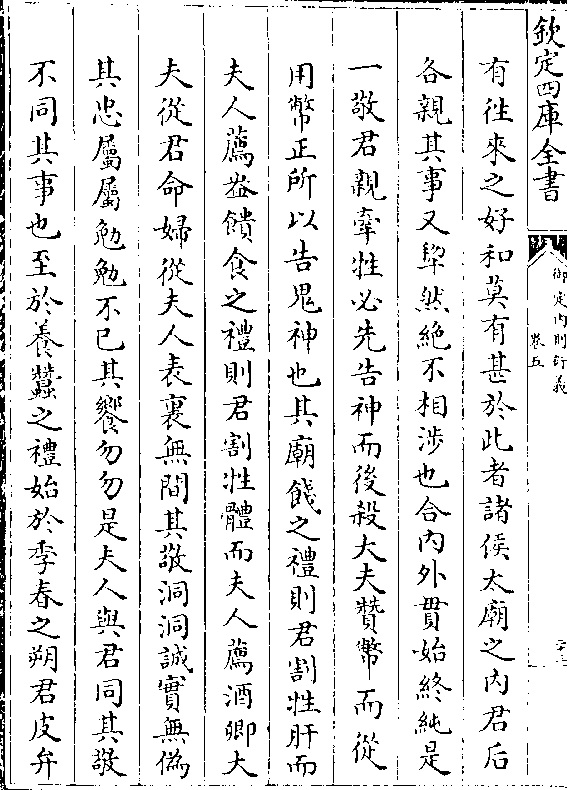 欽定四庫全書
御定內則衍義
卷五
有往來之好和莫有甚於此者諸侯太廟之內君后
各親其事又犂然絶不相涉也合內外貫始終純是
一敬君親牽牲必先告神而後殺大夫贊幣而從
用幣正所以告鬼神也其廟餞之禮則君割牲肝而
夫人薦盎饋食之禮則君割牲體而夫人薦酒卿大
夫從君命婦從夫人表裏無間其敬洞洞誠實無僞
其忠屬屬勉勉不已其饗勿勿是夫人與君同其敬
不同其事也至於養蠶之禮始於季春之朔君皮弁